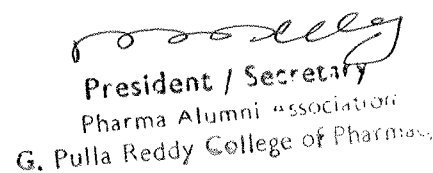 President / Secretary
Pharma Alumni Association
G. Pulla Reddy College of Pharmac